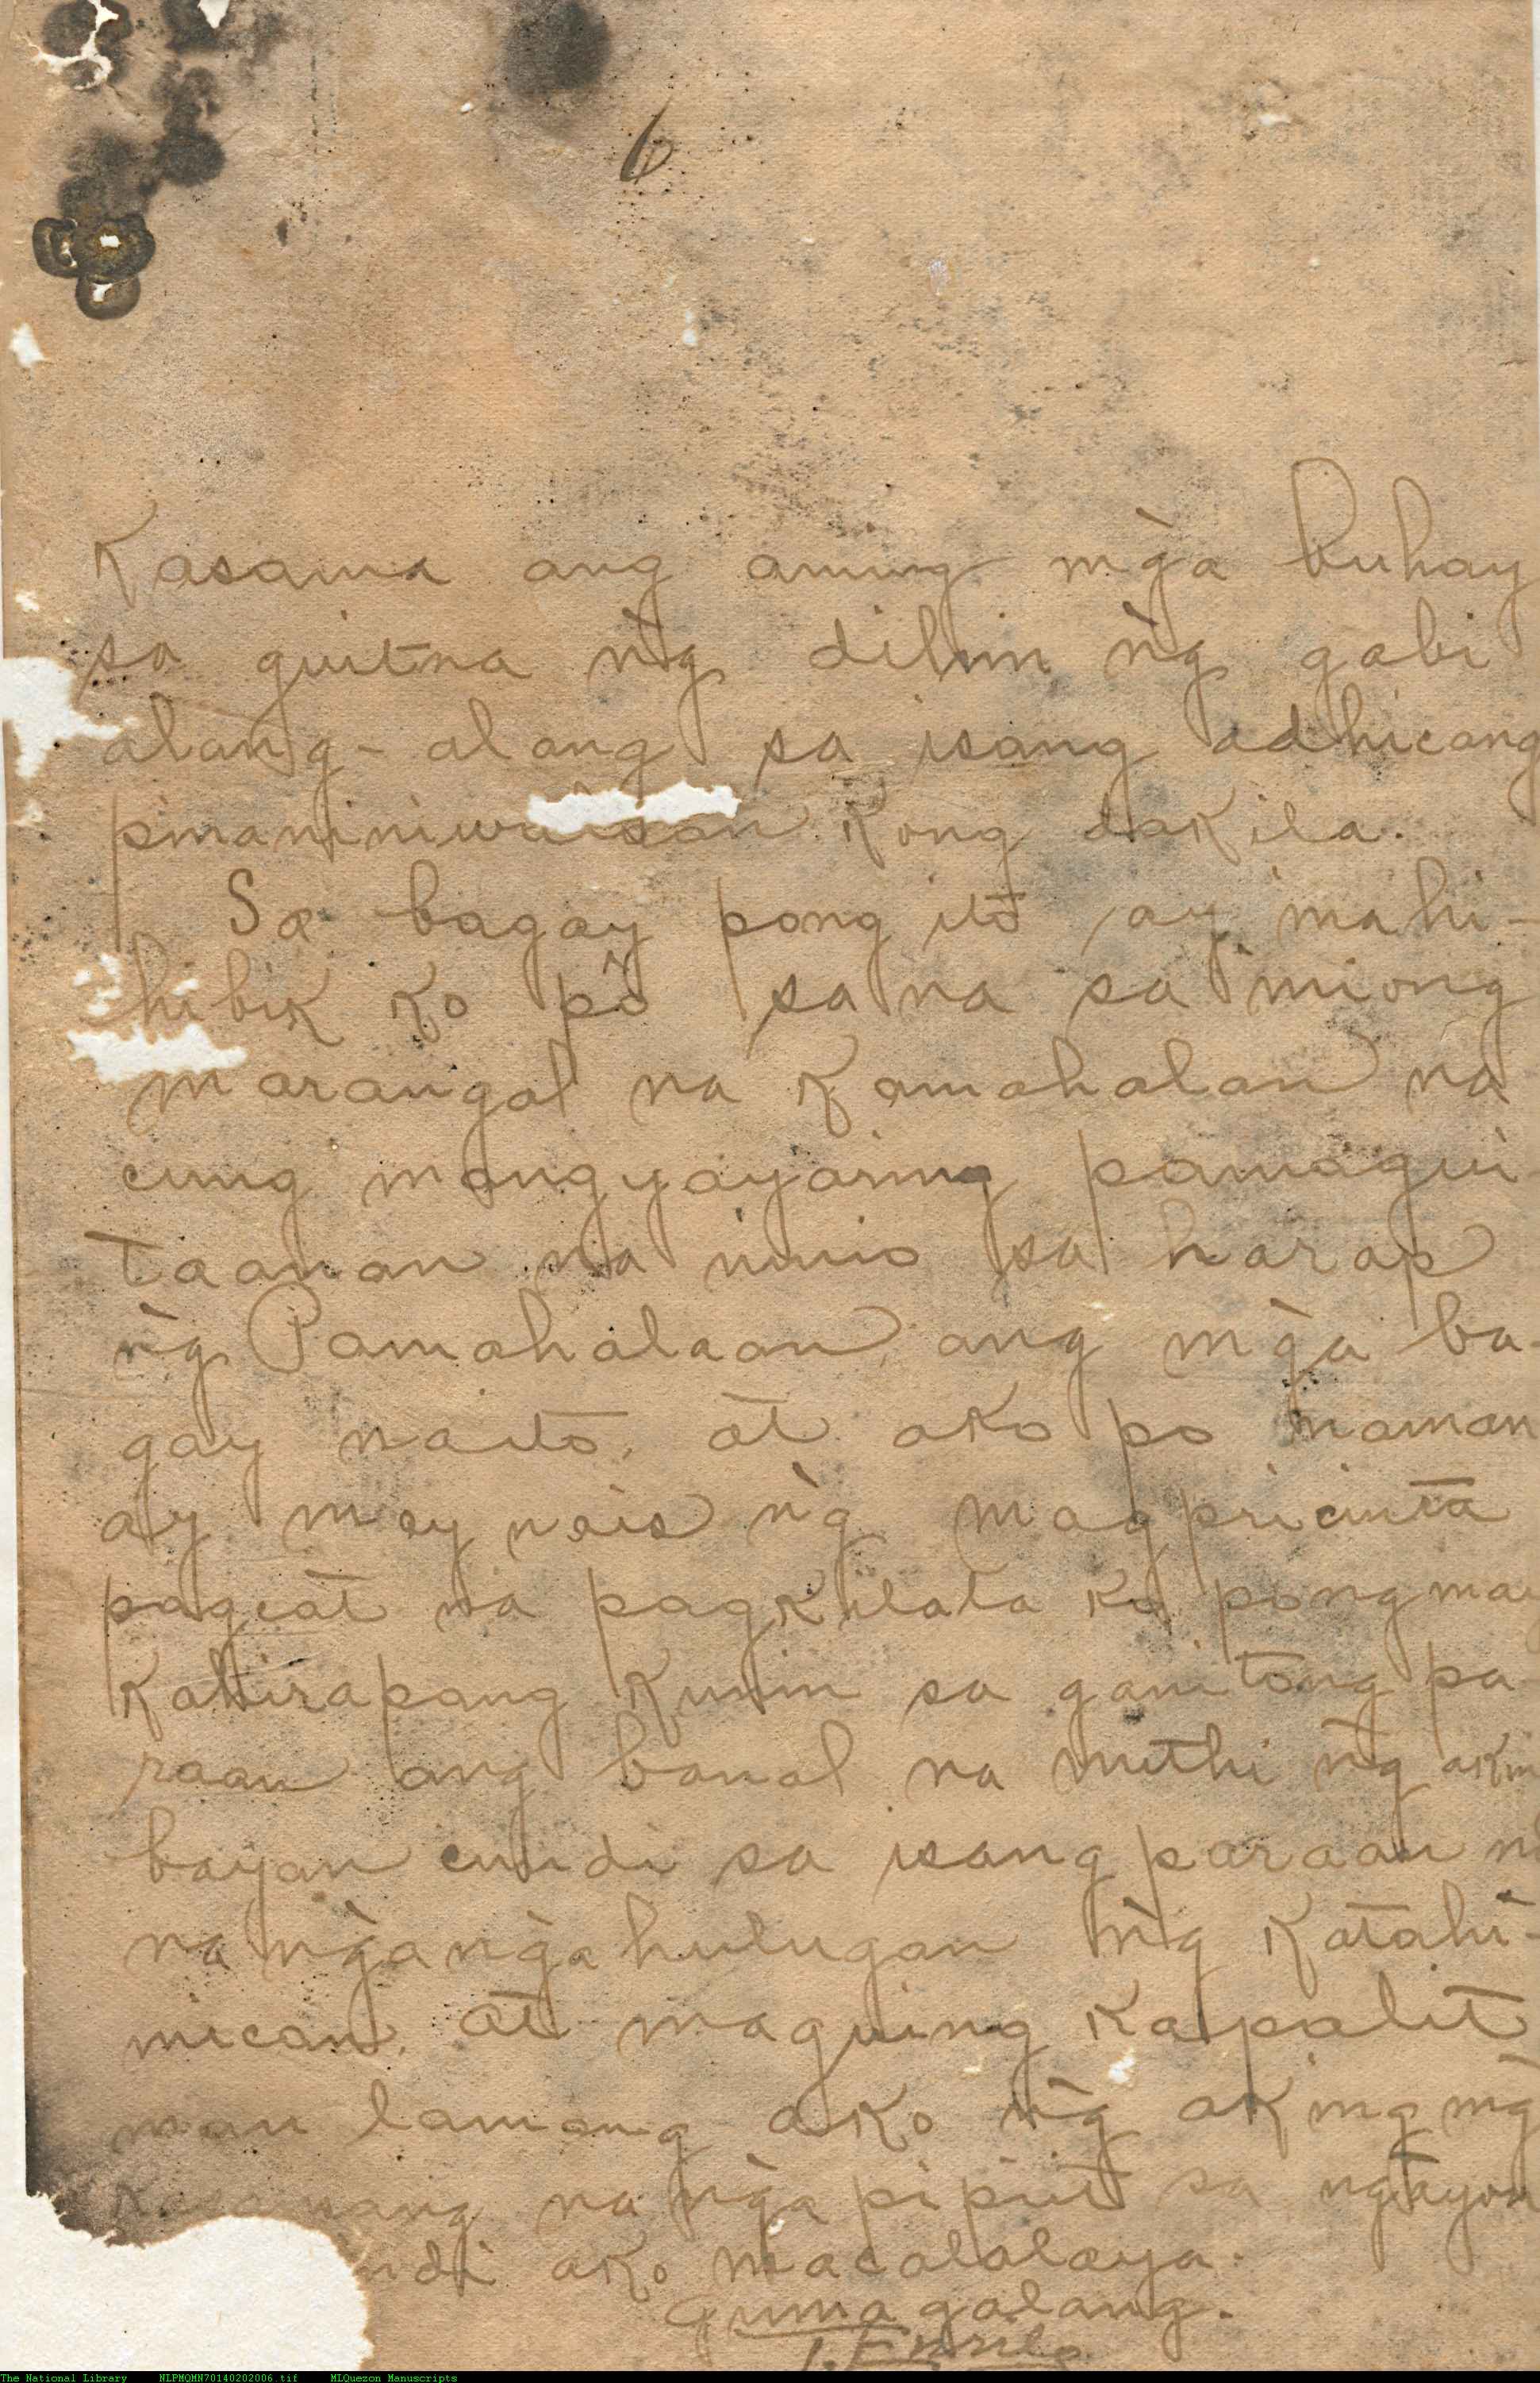 6
Kasama ang aming mg̃a buhay
sa guitna ng̃ dilim ng̃ gabi
alang-alang sa isang adhicang
pinaniniwalaan kong dakila.
Sa bagay pong ito, ay mahi-
hibik ko pô sana sa iniong
marangal na Kamahalan na
cung mangyayaring pamagui
taanan na ninio sa harap
ng̃ Pamahalaan, ang mg̃a ba-
gay naito, at ako po naman
ay may nais ng̃ magpricinta
pagcat sa pagkilala ko pong ma
kahirapang kunin sa ganitong pa
raan ang banal na mithi ng̃ aking
bayan cundi sa isang paraan na
na ng̃ang̃ahulugan ng̃ katahi-
mican, at maguing kapalit
man lamang ako ng̃ aking mg̃
na ng̃a pipiit sa ngayon
ako macalalaya.
Gumagalang.
T. Enrile
The National Library NLPMQMN70140202006.tif MLQuezon Manuscripts